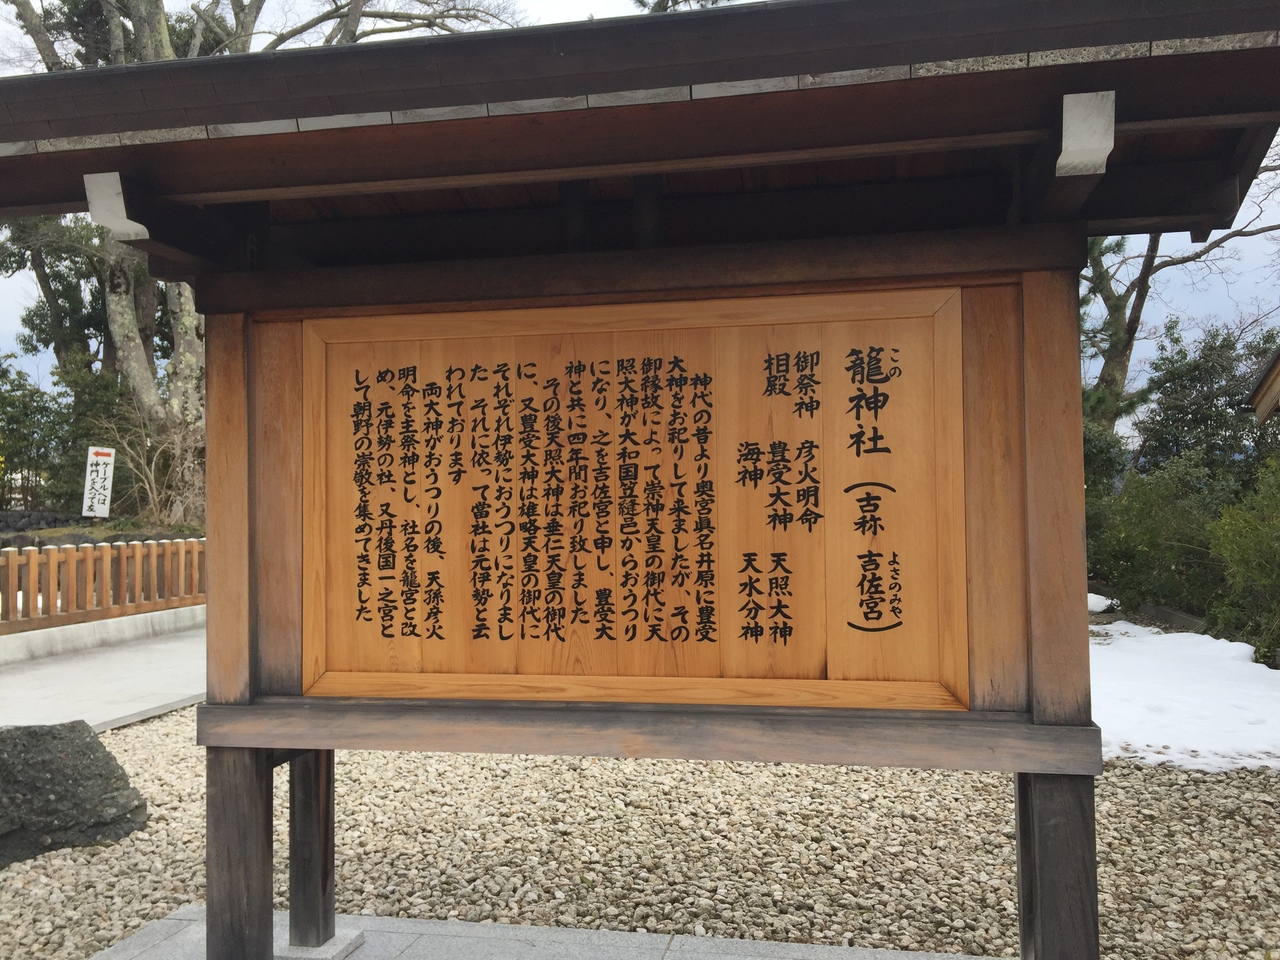 この
籠神社（古称 吉佐宮）
よさのみや
御祭神 彦火明命
相殿 豊受大神 天照大神
海神 天水分神
神代の昔より奥宮眞名井原に豊受
大神をお祀りして来ましたが、その
御縁故によって崇神天皇の御代に天
照大神が大和国笠縫邑からおうつり
になり、之を吉佐宮と申し、豊受大
神と共に四年間お祀り致しました
その後天照大神は垂仁天皇の御代
に、又豊受大神は雄略天皇の御代に
それぞれ伊勢におうつりになりまし
た それに依って當社は元伊勢と云
われております
両大神がおうつりの後、天孫彦火
明命を主祭神とし、社名を籠宮と改
め、元伊勢の社、又丹後国一之宮と
して朝野の崇敬を集めてきました
ケーブルへは
神門を入って左